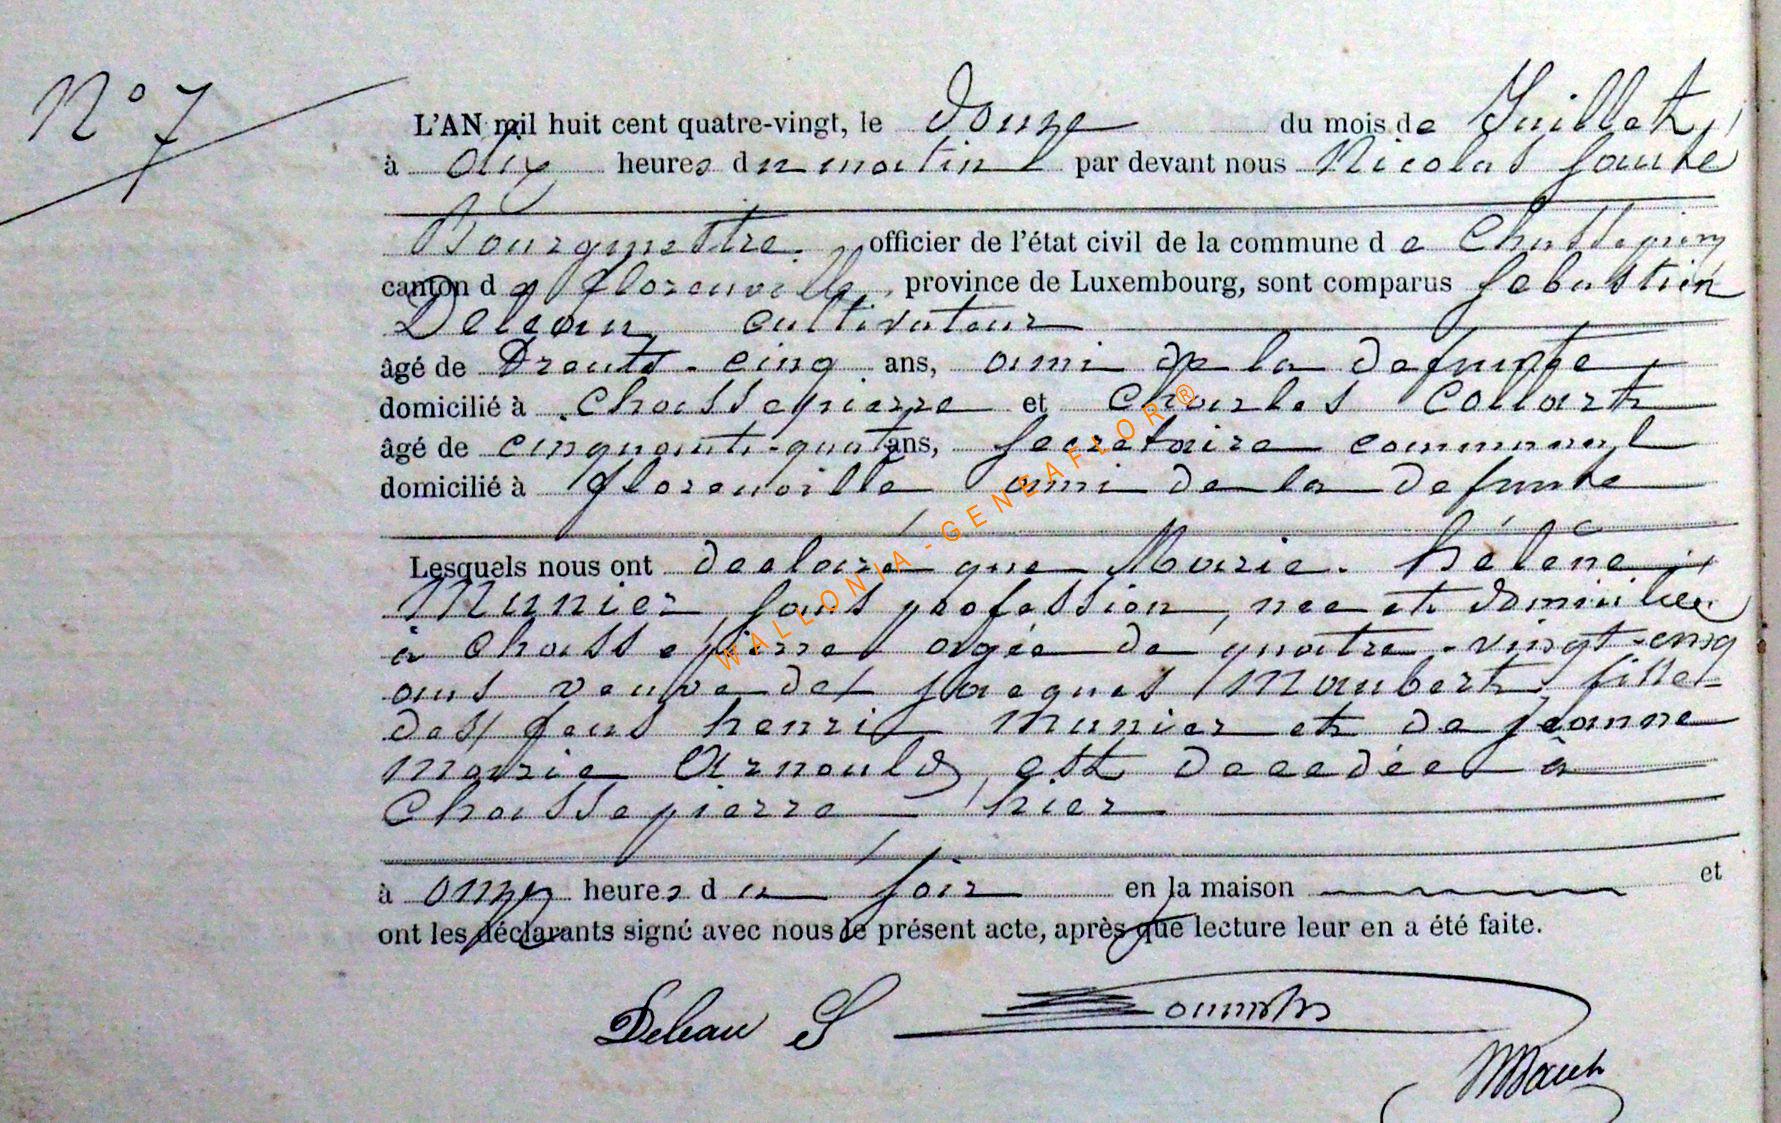 N° 7
L'AN mil huit cent quatre-vingt, le douze du mois de Juillet,
à dix heures du matin par devant nous Nicolas
Bourgmestre. officier de l'état civil de la commune de Chassepierre
canton de florenville, province de Luxembourg, sont comparus Sebastien
Deleau cultivateur
âgé de Trente-cinq ans, ami de la defunte
domicilié à Chassepierre et Charles Collart
âgé de cinquante-quatre ans, secretaire communal
domicilié à florenville ami de la defunte
Lesquels nous ont declaré que Marie. héléne
Munier, sans profession, nee et domiciliée
à Chassepierre agée de quatre-vingt-cinq
ans veuve de Jacques Maubert, fille
des feus henri Munier et de jeanne
marie Arnould, est decedée à
Chassepierre hier
à onze heures du soir en la maison et
ont les déclarants signé avec nous le présent acte, après que lecture leur en a été faite.
Deleau S
WALLONIA-GENEAFLOR®